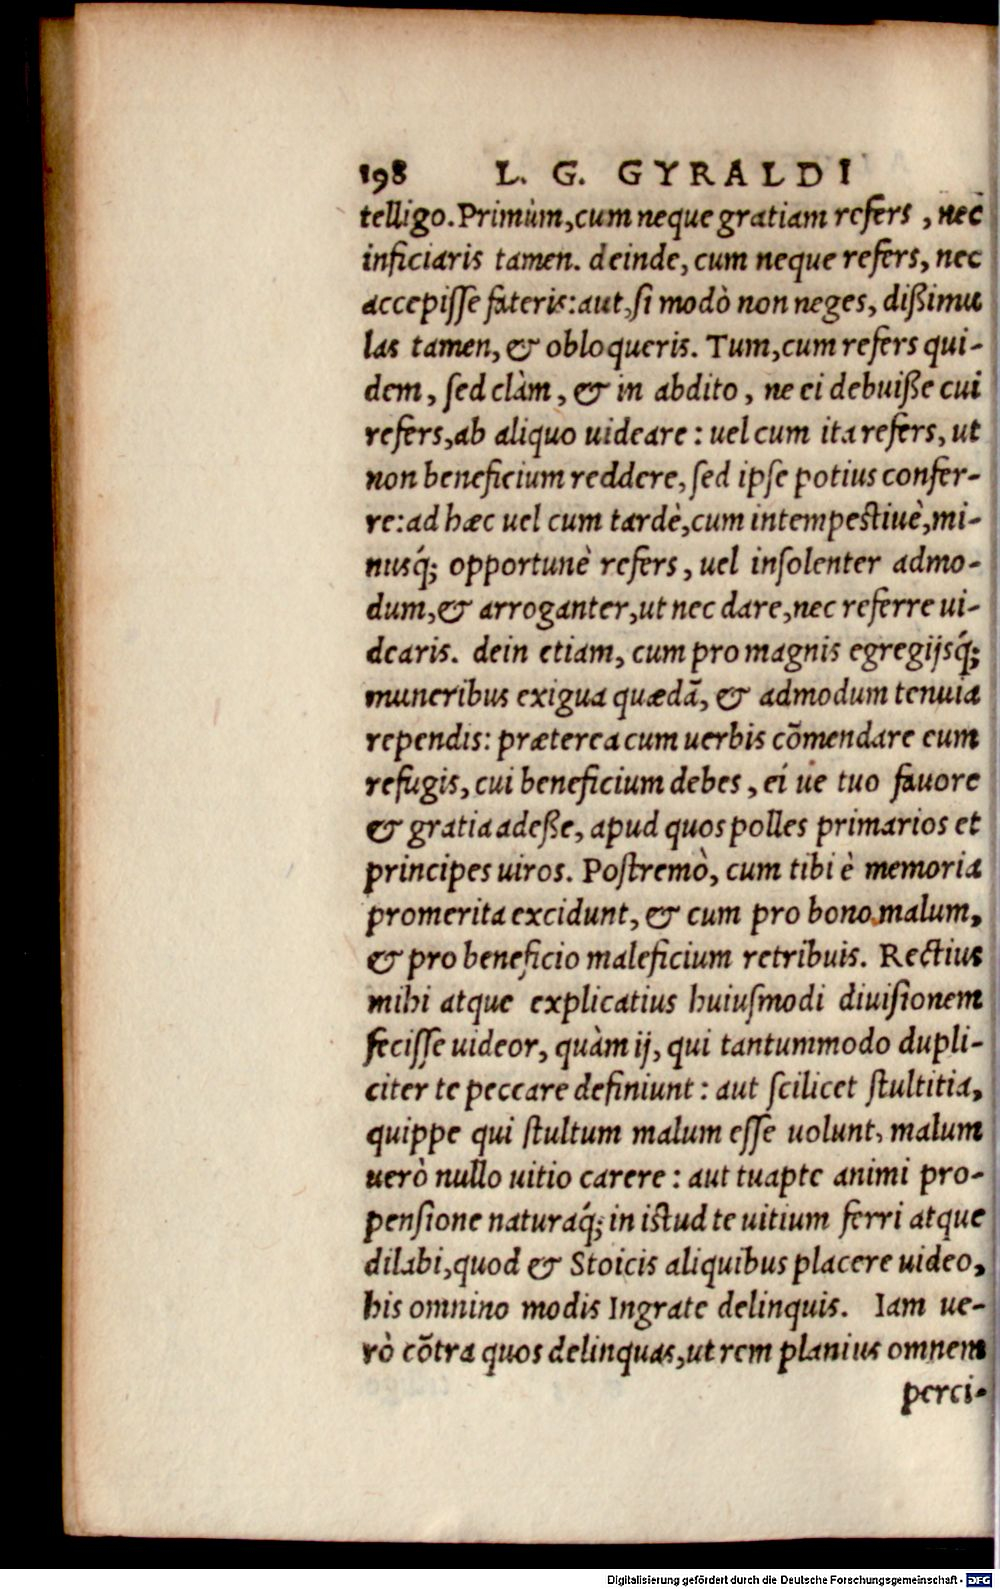 198 L. G. GYRALDI
telligo. Primùm, cum neque gratiam refers, nec
inficiaris tamen. deinde, cum neque refers, nec
accepiſſe fateris: aut, ſi modò non neges, dißimu
las tamen, & obloqueris. Tum, cum refers qui-
dem, ſed clàm, & in abdito, ne ei debuiße cui
refers, ab aliquo uideare: uel cum ita refers, ut
non beneficium reddere, ſed ipſe potius confer-
re: ad hæc uel cum tardè, cum intempeſtiuè, mi-
nusq́; opportunè refers, uel inſolenter admo-
dum, & arroganter, ut nec dare, nec referre ui-
dearis. dein etiam, cum pro magnis egregijsq́;
muneribus exigua quædã, & admodum tenuia
rependis: præterea cum uerbis cõmendare eum
refugis, cui beneficium debes, ei ue tuo fauore
& gratia adeße, apud quos polles primarios et
principes uiros. Poſtremò, cum tibi è memoria
promerita excidunt, & cum pro bono malum,
& pro beneficio maleficium retribuis. Rectius
mihi atque explicatius huiuſmodi diuiſionem
feciſſe uideor, quàm ij, qui tantummodo dupli-
citer te peccare definiunt: aut ſcilicet ſtultitia,
quippe qui ſtultum malum eſſe uolunt, malum
uerò nullo uitio carere: aut tuapte animi pro-
penſione naturaq́; in iſtud te uitium ferri atque
dilabi, quod & Stoicis aliquibus placere uideo,
his omnino modis Ingrate delinquis. Iam ue-
rò cõtra quos delinquas, ut rem planius omnem
perci-
Digitalisierung gefördert durch die Deutsche Forschungsgemeinschaft - DFG